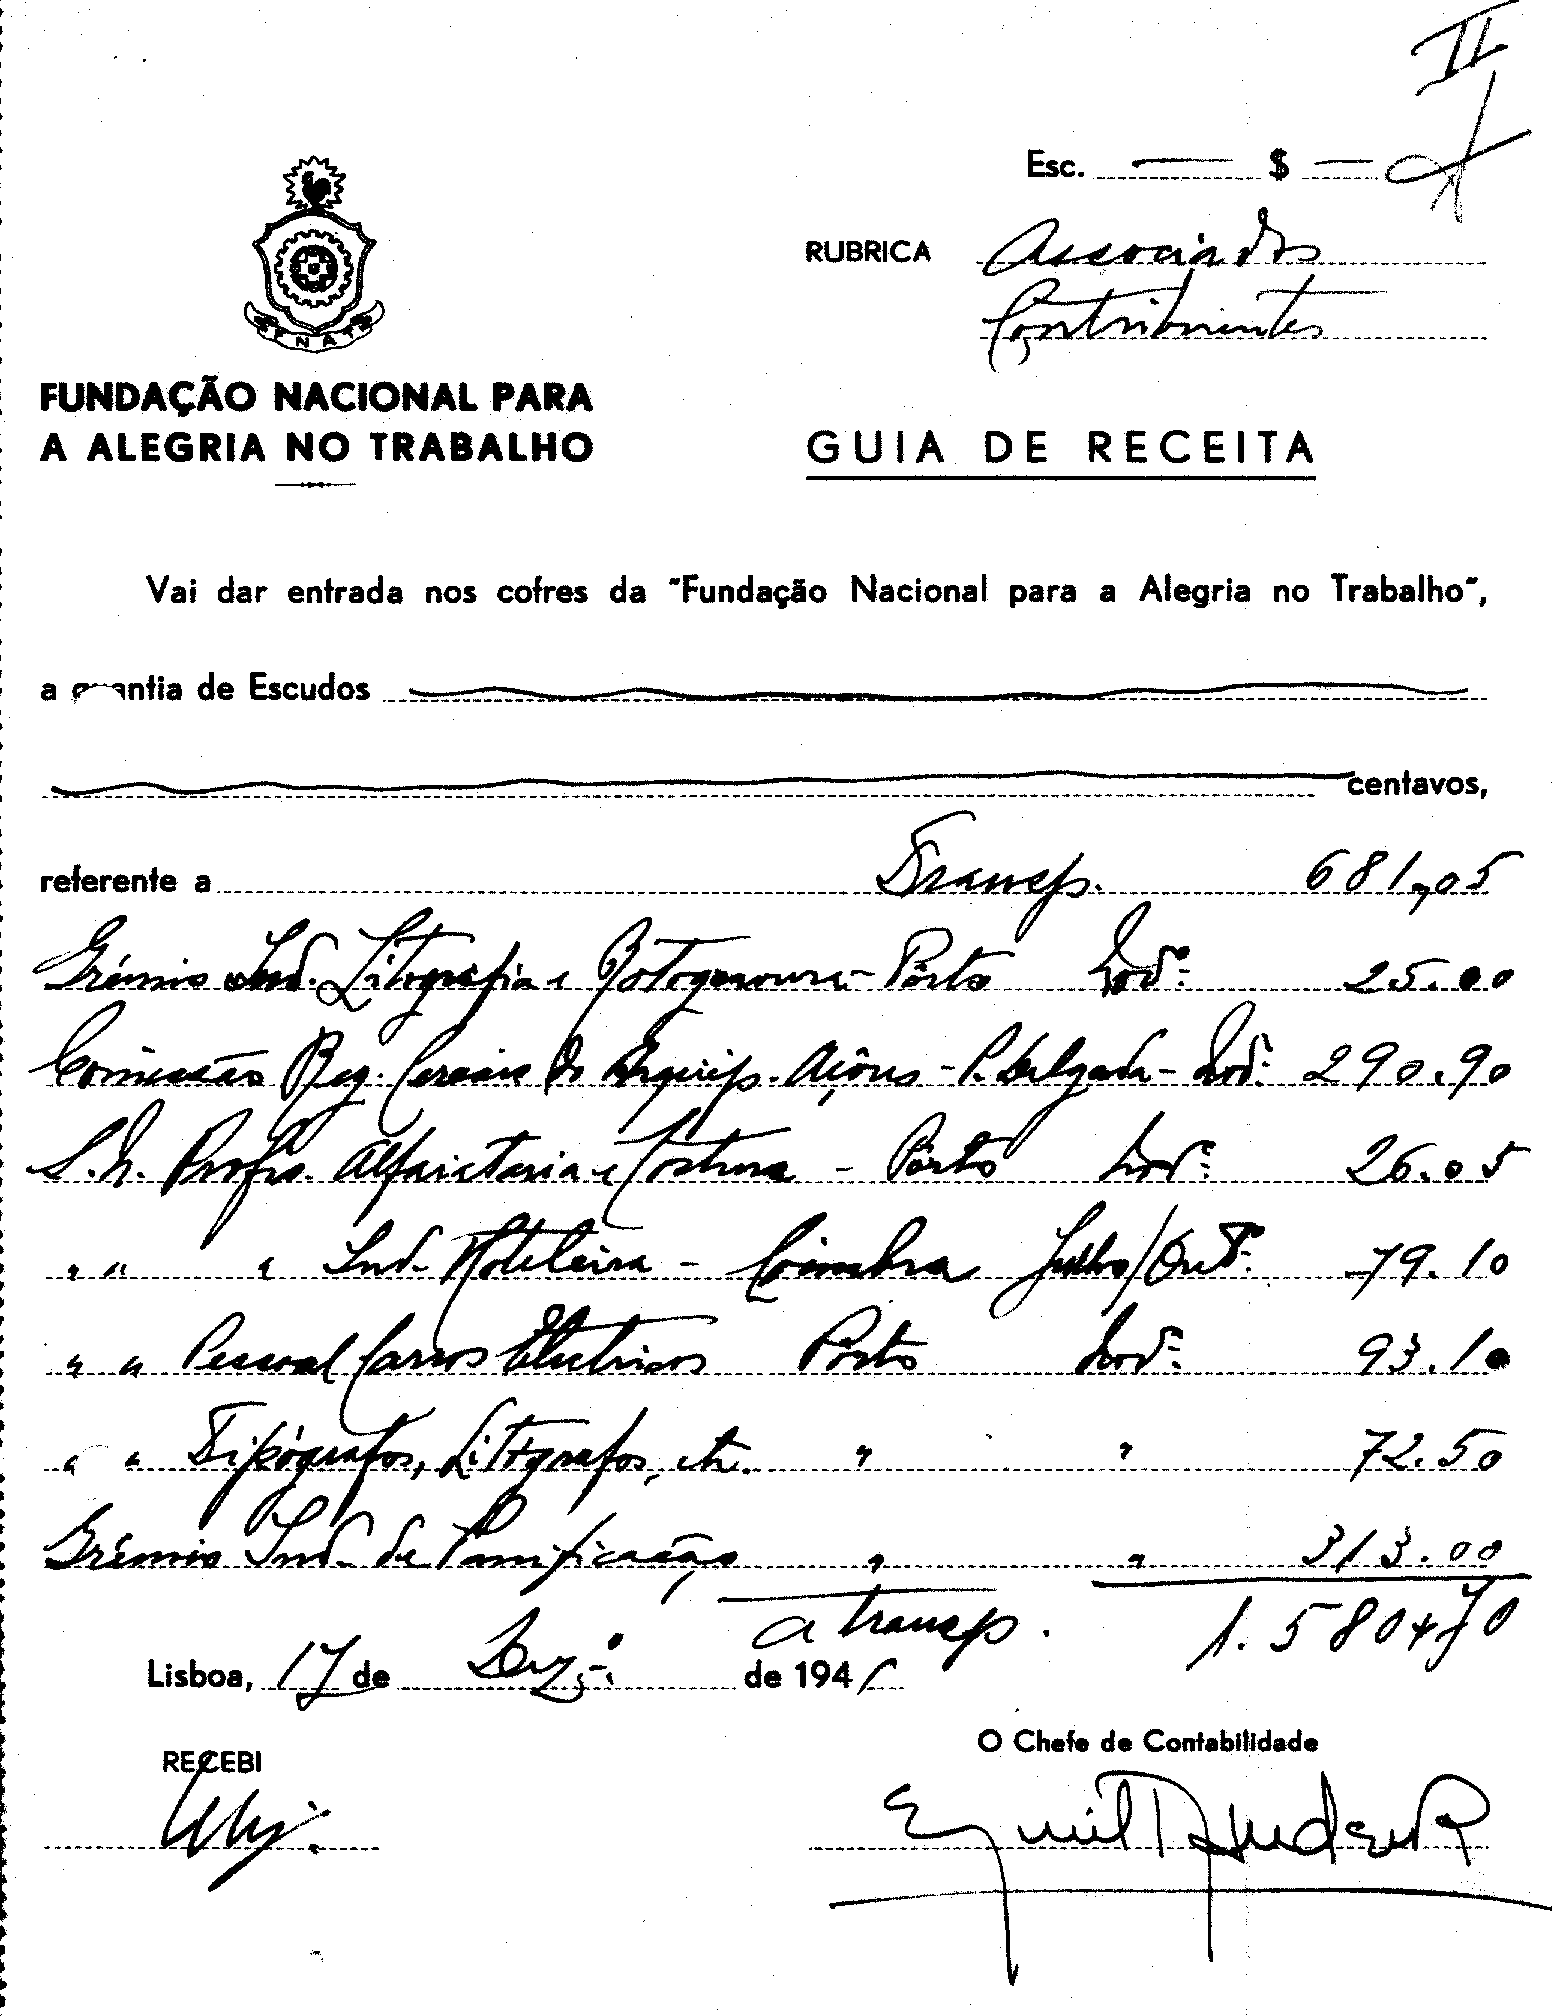 II
Esc. — $ —
RUBRICA Associados
Contribuintes
F N A T
FUNDAÇÃO NACIONAL PARA
A ALEGRIA NO TRABALHO
GUIA DE RECEITA
Vai dar entrada nos cofres da "Fundação Nacional para a Alegria no Trabalho",
a quantia de Escudos
centavos,
referente a Transp. 681,05
Grémio Ind. Litografia e Rotogravura - Pôrto Nov.º 25.00
Comissão Reg. Cereais do Arquip. Açôres - P. Delgada - Nov.º 290.90
S. N. Profis. Alfaiataria e Costura - Pôrto Nov.º 26.05
" " " Ind. Hoteleira - Coimbra Julho/Out.º 79.10
" " Pessoal Carros Eléctricos Pôrto Nov.º 93.10
" " Tipógrafos, Litógrafos, etc. " " 72.50
Grémio Ind. de Panificação " " 313.00
a transp. 1.580,70
Lisboa, 17 de Dez.º de 194
RECEBI
O Chefe de Contabilidade